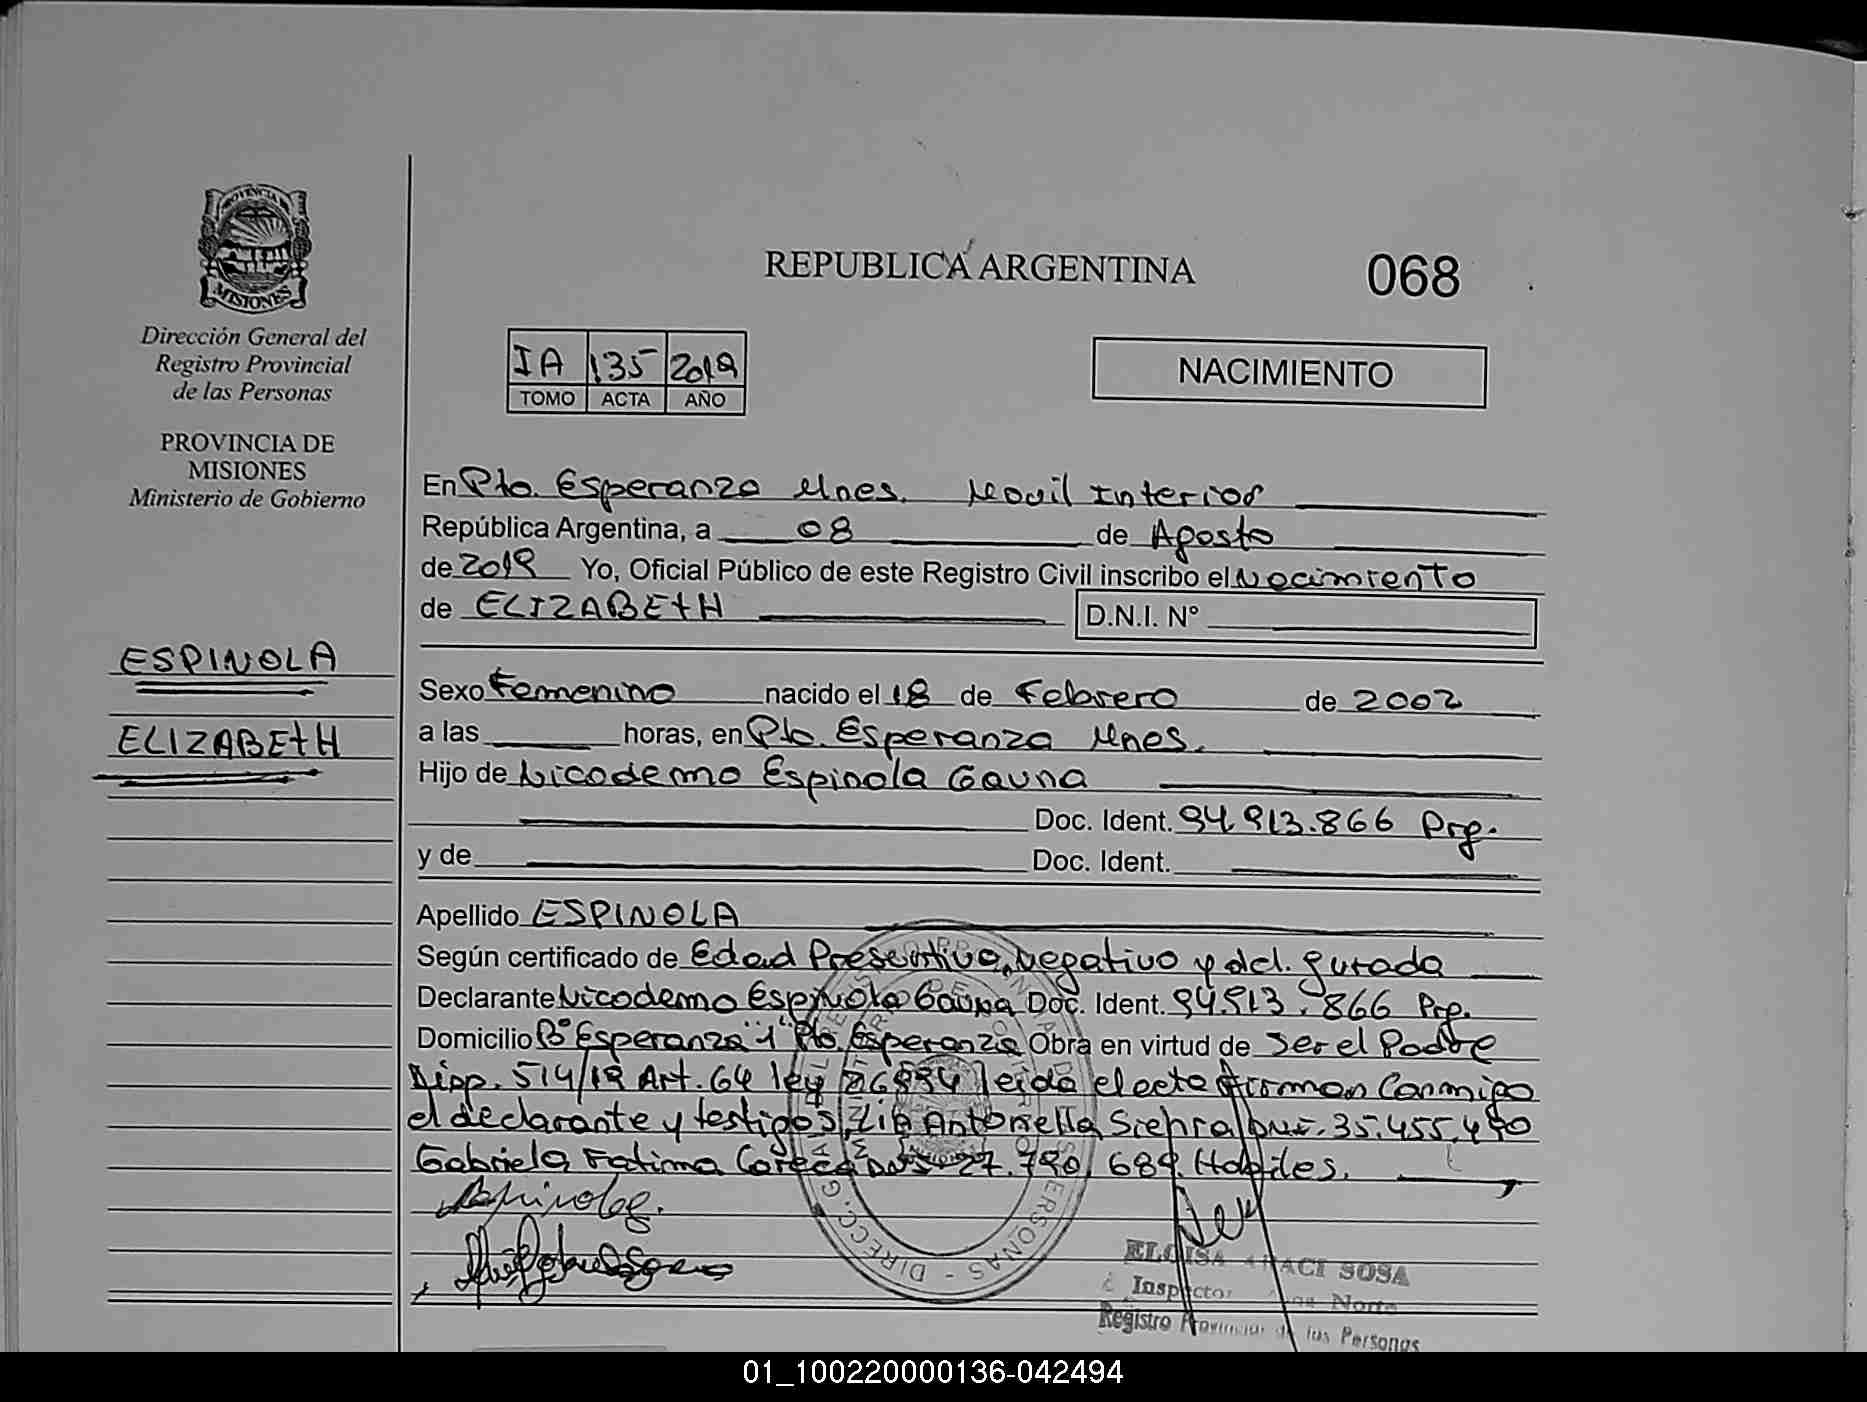 PROVINCIA DE
MISIONES
Dirección General del
Registro Provincial
de las Personas
PROVINCIA DE
MISIONES
Ministerio de Gobierno
ESPINOLA
ELIZABETH
REPUBLICA ARGENTINA
068
IA 135 2019
TOMO ACTA AÑO
NACIMIENTO
En Pto. Esperanza Mnes. Movil Interior
República Argentina, a 08 de Agosto
de 2019 Yo, Oficial Público de este Registro Civil inscribo el Nacimiento
de ELIZABETH D.N.I. Nº
Sexo Femenino nacido el 18 de Febrero de 2002
a las horas, en Pto. Esperanza Mnes.
Hijo de Nicodemo Espinola Gauna
Doc. Ident. 94.913.866 Prg.
y de Doc. Ident.
Apellido ESPINOLA
Según certificado de Edad Presuntiva, Negativo y dcl. Jurada
Declarante Nicodemo Espinola Gauna Doc. Ident. 94.913.866 Prg.
Domicilio Bº Esperanza "1" Pto. Esperanza Obra en virtud de Ser el Padre
Disp. 514/19 Art. 64 ley 26994 leida el acta firman Conmigo
el declarante y testigos, Antonella DNI. 35.455.490
Gabriela Fatima DNI 27.790.689. Habiles.
Espinola g.
ELOISA ARACI SOSA
Inspector Zona Norte
Registro Provincial de las Personas
01_100220000136-042494